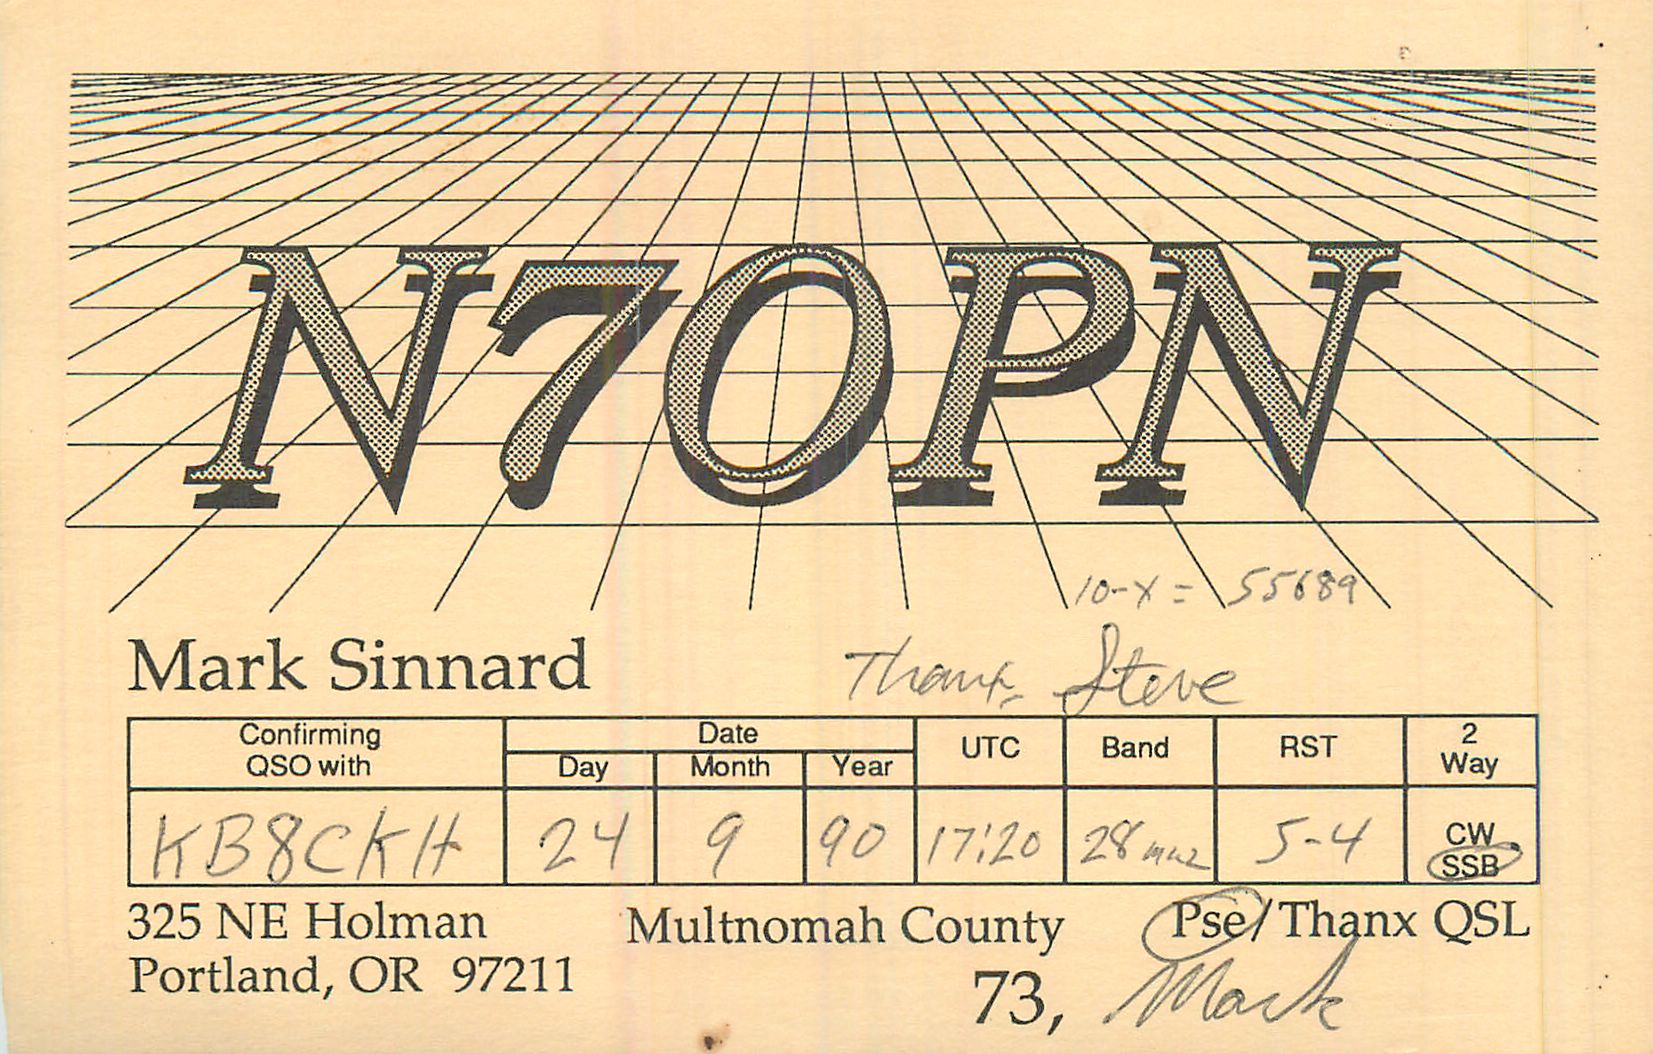 N7OPN
10-X = 55689
Mark Sinnard
Thanx, Steve
Confirming QSO with
Date
Day Month Year
UTC
Band
RST
2 Way
KB8CKH 24 9 90 17:20 28 MHz 5-4 CW SSB
325 NE Holman
Multnomah County
Pse/Thanx QSL
Portland, OR 97211
73, Mark